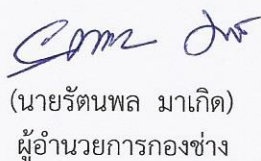 (นายรัตนพล มาเกิด)
ผู้อำนวยการกองช่าง